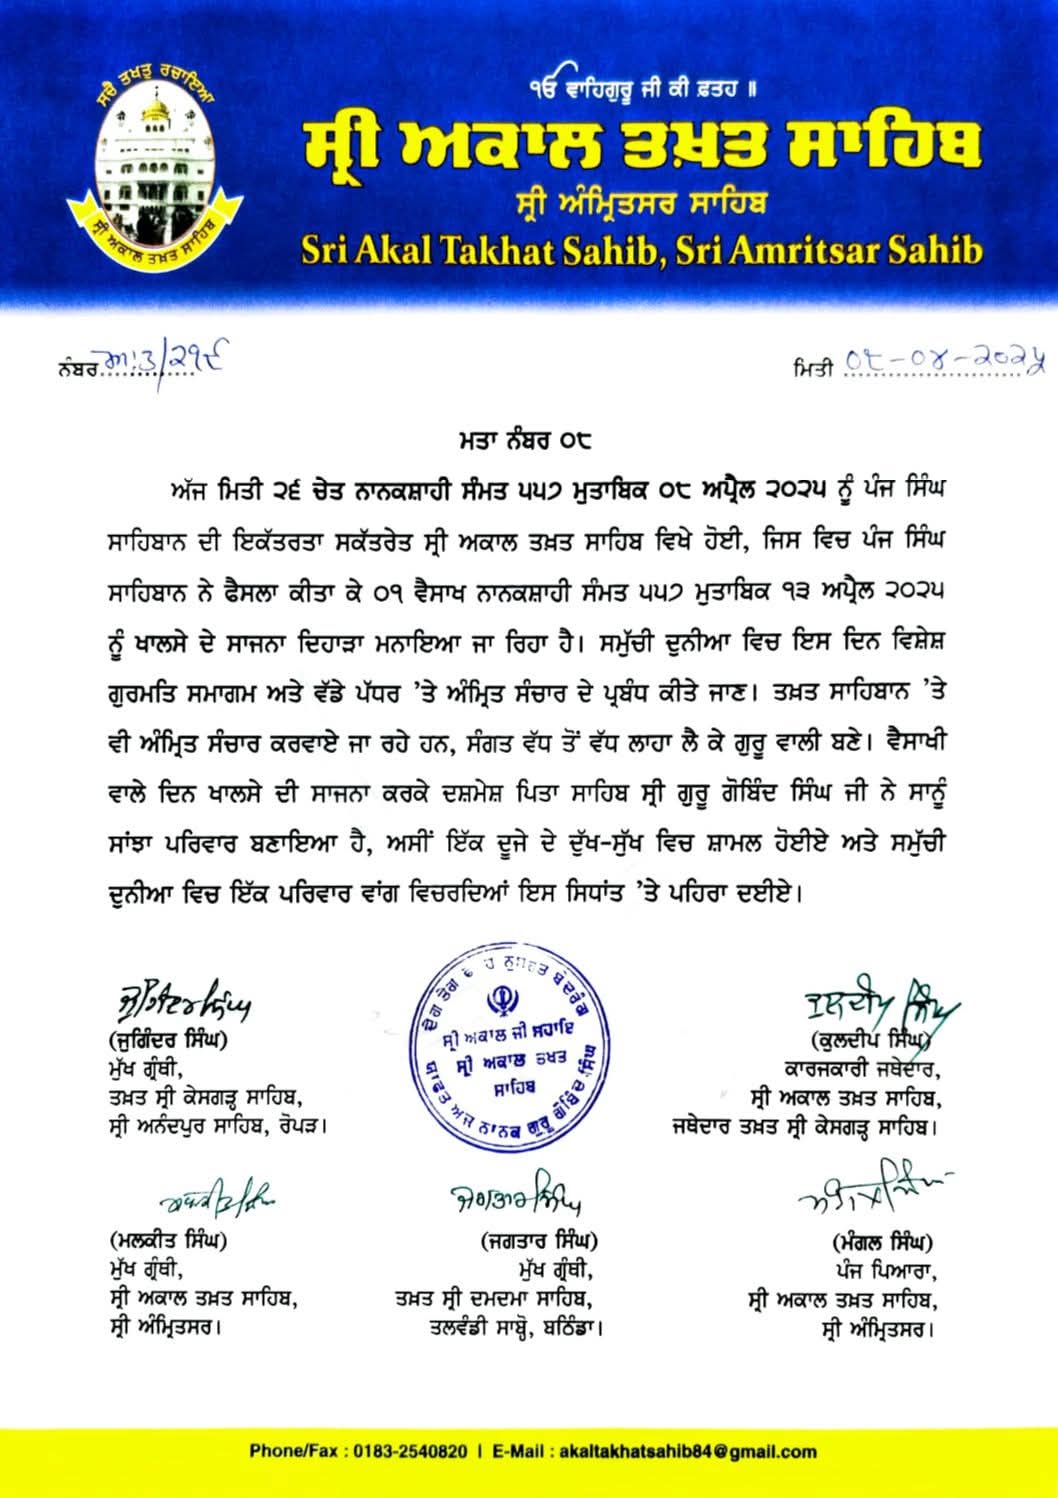 ੴ ਵਾਹਿਗੁਰੂ ਜੀ ਕੀ ਫ਼ਤਹ ॥
ਸਚੈ ਤਖਤੁ ਰਚਾਇਆ
ਸ੍ਰੀ ਅਕਾਲ ਤਖ਼ਤ ਸਾਹਿਬ
ਸ੍ਰੀ ਅਕਾਲ ਤਖ਼ਤ ਸਾਹਿਬ
ਸ੍ਰੀ ਅੰਮ੍ਰਿਤਸਰ ਸਾਹਿਬ
Sri Akal Takhat Sahib, Sri Amritsar Sahib
ਨੰਬਰ ਅ:ਤ/੨੧੯
ਮਿਤੀ ੦੮-੦੪-੨੦੨੫
ਮਤਾ ਨੰਬਰ ੦੮
ਅੱਜ ਮਿਤੀ ੨੬ ਚੇਤ ਨਾਨਕਸ਼ਾਹੀ ਸੰਮਤ ੫੫੭ ਮੁਤਾਬਿਕ ੦੮ ਅਪ੍ਰੈਲ ੨੦੨੫ ਨੂੰ ਪੰਜ ਸਿੰਘ
ਸਾਹਿਬਾਨ ਦੀ ਇਕੱਤਰਤਾ ਸਕੱਤਰੇਤ ਸ੍ਰੀ ਅਕਾਲ ਤਖ਼ਤ ਸਾਹਿਬ ਵਿਖੇ ਹੋਈ, ਜਿਸ ਵਿਚ ਪੰਜ ਸਿੰਘ
ਸਾਹਿਬਾਨ ਨੇ ਫੈਸਲਾ ਕੀਤਾ ਕੇ ੦੧ ਵੈਸਾਖ ਨਾਨਕਸ਼ਾਹੀ ਸੰਮਤ ੫੫੭ ਮੁਤਾਬਿਕ ੧੩ ਅਪ੍ਰੈਲ ੨੦੨੫
ਨੂੰ ਖਾਲਸੇ ਦੇ ਸਾਜਨਾ ਦਿਹਾੜਾ ਮਨਾਇਆ ਜਾ ਰਿਹਾ ਹੈ। ਸਮੁੱਚੀ ਦੁਨੀਆ ਵਿਚ ਇਸ ਦਿਨ ਵਿਸ਼ੇਸ਼
ਗੁਰਮਤਿ ਸਮਾਗਮ ਅਤੇ ਵੱਡੇ ਪੱਧਰ 'ਤੇ ਅੰਮ੍ਰਿਤ ਸੰਚਾਰ ਦੇ ਪ੍ਰਬੰਧ ਕੀਤੇ ਜਾਣ। ਤਖ਼ਤ ਸਾਹਿਬਾਨ 'ਤੇ
ਵੀ ਅੰਮ੍ਰਿਤ ਸੰਚਾਰ ਕਰਵਾਏ ਜਾ ਰਹੇ ਹਨ, ਸੰਗਤ ਵੱਧ ਤੋਂ ਵੱਧ ਲਾਹਾ ਲੈ ਕੇ ਗੁਰੂ ਵਾਲੀ ਬਣੇ। ਵੈਸਾਖੀ
ਵਾਲੇ ਦਿਨ ਖਾਲਸੇ ਦੀ ਸਾਜਨਾ ਕਰਕੇ ਦਸ਼ਮੇਸ਼ ਪਿਤਾ ਸਾਹਿਬ ਸ੍ਰੀ ਗੁਰੂ ਗੋਬਿੰਦ ਸਿੰਘ ਜੀ ਨੇ ਸਾਨੂੰ
ਸਾਂਝਾ ਪਰਿਵਾਰ ਬਣਾਇਆ ਹੈ, ਅਸੀਂ ਇੱਕ ਦੂਜੇ ਦੇ ਦੁੱਖ-ਸੁੱਖ ਵਿਚ ਸ਼ਾਮਲ ਹੋਈਏ ਅਤੇ ਸਮੁੱਚੀ
ਦੁਨੀਆ ਵਿਚ ਇੱਕ ਪਰਿਵਾਰ ਵਾਂਗ ਵਿਚਰਦਿਆਂ ਇਸ ਸਿਧਾਂਤ 'ਤੇ ਪਹਿਰਾ ਦਈਏ।
ਜੁਗਿੰਦਰ ਸਿੰਘ
(ਜੁਗਿੰਦਰ ਸਿੰਘ)
ਮੁੱਖ ਗ੍ਰੰਥੀ,
ਤਖ਼ਤ ਸ੍ਰੀ ਕੇਸਗੜ੍ਹ ਸਾਹਿਬ,
ਸ੍ਰੀ ਅਨੰਦਪੁਰ ਸਾਹਿਬ, ਰੋਪੜ।
ਦੇਗ ਤੇਗ ਨੁਸਰਤ ਬੇਦਰੰਗ
ਯਾਫਤ ਅਜ ਨਾਨਕ ਗੁਰੂ ਗੋਬਿੰਦ ਸਿੰਘ
ਸ੍ਰੀ ਅਕਾਲ ਜੀ ਸਹਾਇ
ਸ੍ਰੀ ਅਕਾਲ ਤਖਤ
ਸਾਹਿਬ
ਕੁਲਦੀਪ ਸਿੰਘ
(ਕੁਲਦੀਪ ਸਿੰਘ)
ਕਾਰਜਕਾਰੀ ਜਥੇਦਾਰ,
ਸ੍ਰੀ ਅਕਾਲ ਤਖ਼ਤ ਸਾਹਿਬ,
ਜਥੇਦਾਰ ਤਖ਼ਤ ਸ੍ਰੀ ਕੇਸਗੜ੍ਹ ਸਾਹਿਬ।
(ਮਲਕੀਤ ਸਿੰਘ)
ਮੁੱਖ ਗ੍ਰੰਥੀ,
ਸ੍ਰੀ ਅਕਾਲ ਤਖ਼ਤ ਸਾਹਿਬ,
ਸ੍ਰੀ ਅੰਮ੍ਰਿਤਸਰ।
ਜਗਤਾਰ ਸਿੰਘ
(ਜਗਤਾਰ ਸਿੰਘ)
ਮੁੱਖ ਗ੍ਰੰਥੀ,
ਤਖ਼ਤ ਸ੍ਰੀ ਦਮਦਮਾ ਸਾਹਿਬ,
ਤਲਵੰਡੀ ਸਾਬ੍ਹੋ, ਬਠਿੰਡਾ।
(ਮੰਗਲ ਸਿੰਘ)
ਪੰਜ ਪਿਆਰਾ,
ਸ੍ਰੀ ਅਕਾਲ ਤਖ਼ਤ ਸਾਹਿਬ,
ਸ੍ਰੀ ਅੰਮ੍ਰਿਤਸਰ।
Phone/Fax : 0183-2540820 | E-Mail : akaltakhatsahib84@gmail.com